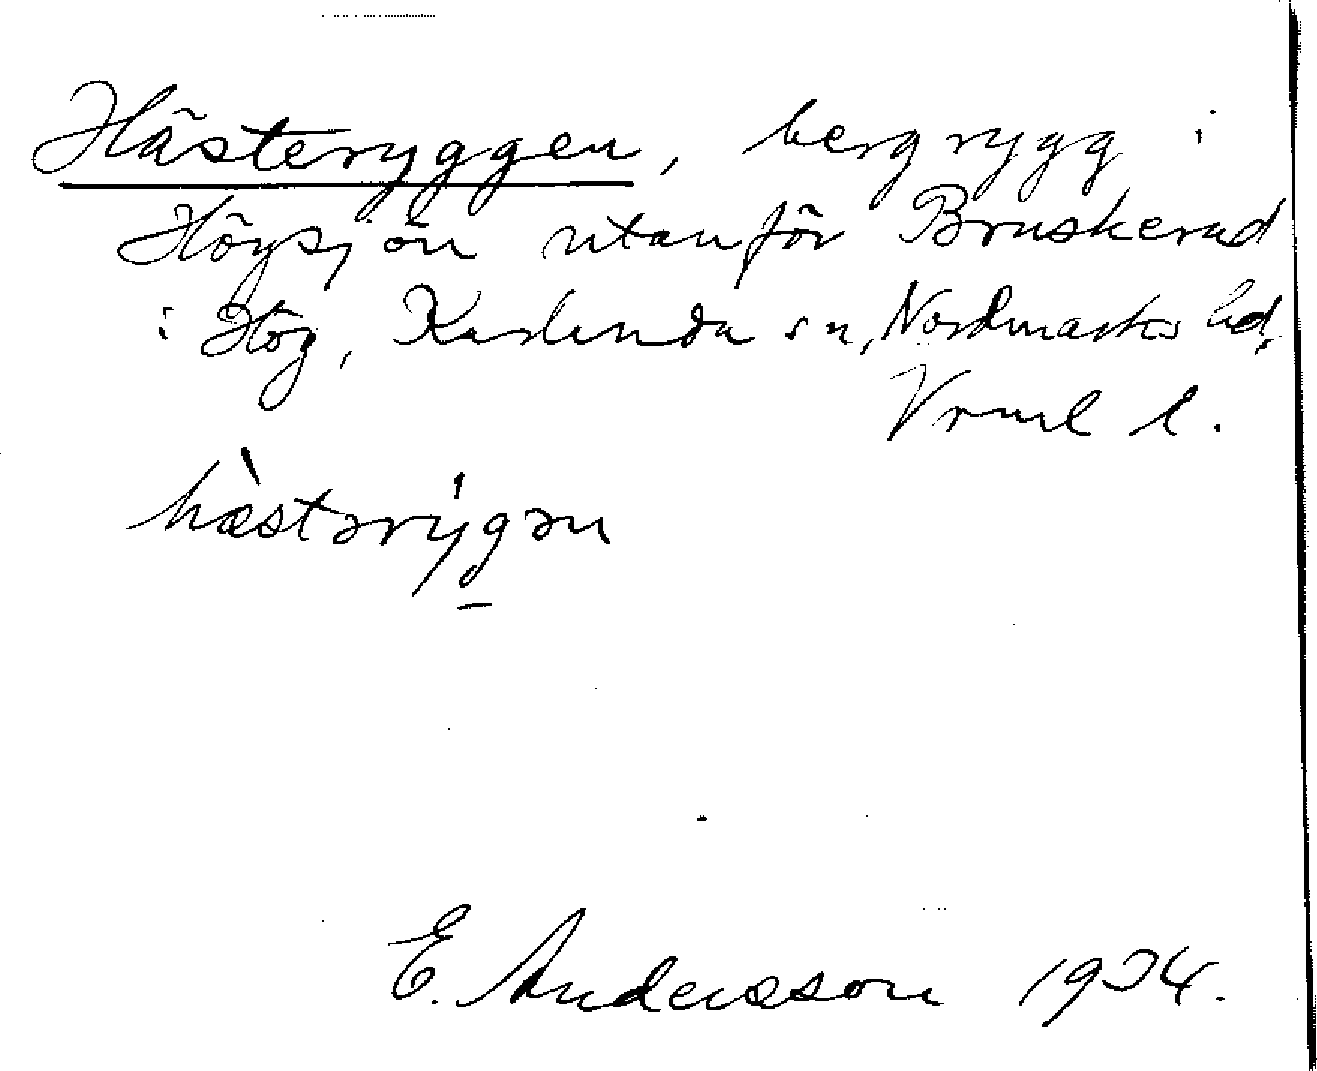 Hästeryggen, bergrygg i
Högsjön utanför Bruskerud
i Hög, Karlanda sn, Nordmarks hd,
Vrml l.
hàstərýgən
E. Andersson 1924.